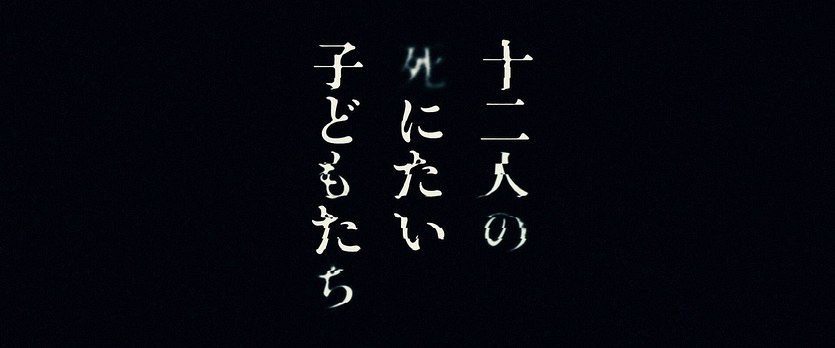 十二人の
死にたい
子どもたち